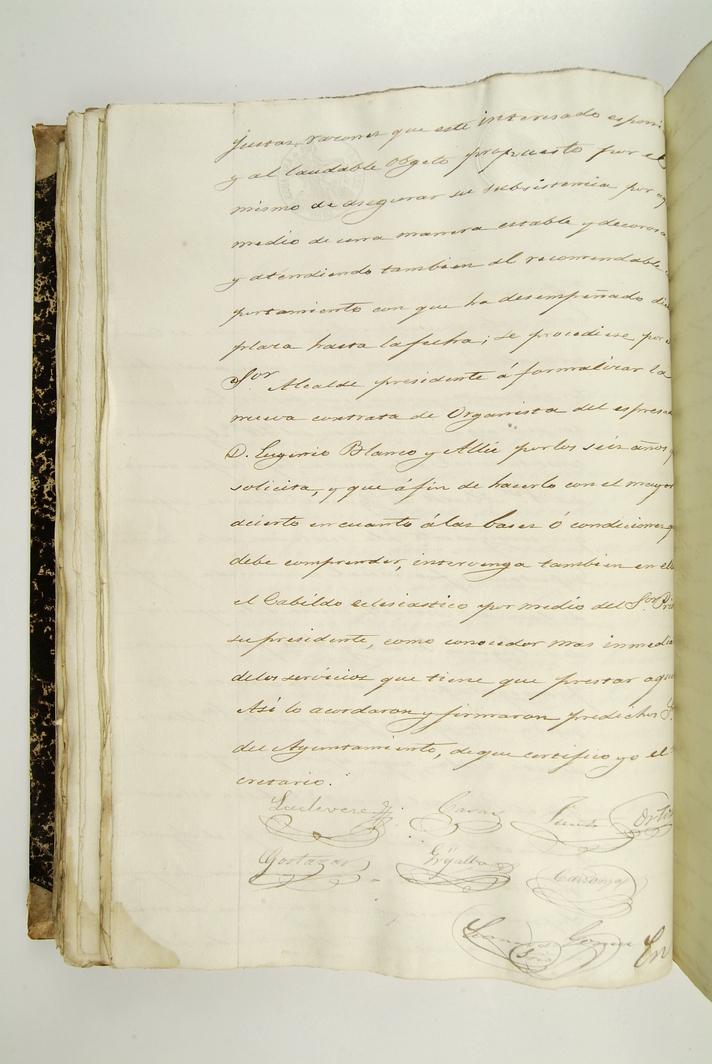 justas razones que este interesado espon
y al laudable obgeto propuesto por el
mismo de asegurar su subsistencia por
medio de una manera estable y decorosa
y atendiendo tambien al recomendable
portamiento con que ha desempeñado di
plaza hasta la fecha; se procediese por
Sor Alcalde presidente á formalizar la
nueva contrata de Organista del espresa
D. Eugenio Blanco y Allúe por los seis años
solicita, y que á fin de hacerlo con el mayor
acierto en cuanto á las bases ó condiciones q
debe comprender, intervenga tambien en el
el Cabildo eclesiastico por medio del Sor Pri
su presidente, como conocedor mas inmedia
de los servicios que tiene que prestar aque
Asi lo acordaron y firmaron predichos S.
del Ayuntamiento, de que certifico yo el
cretario.
Ortiz
Gostazar Grijalba
Gomez
En